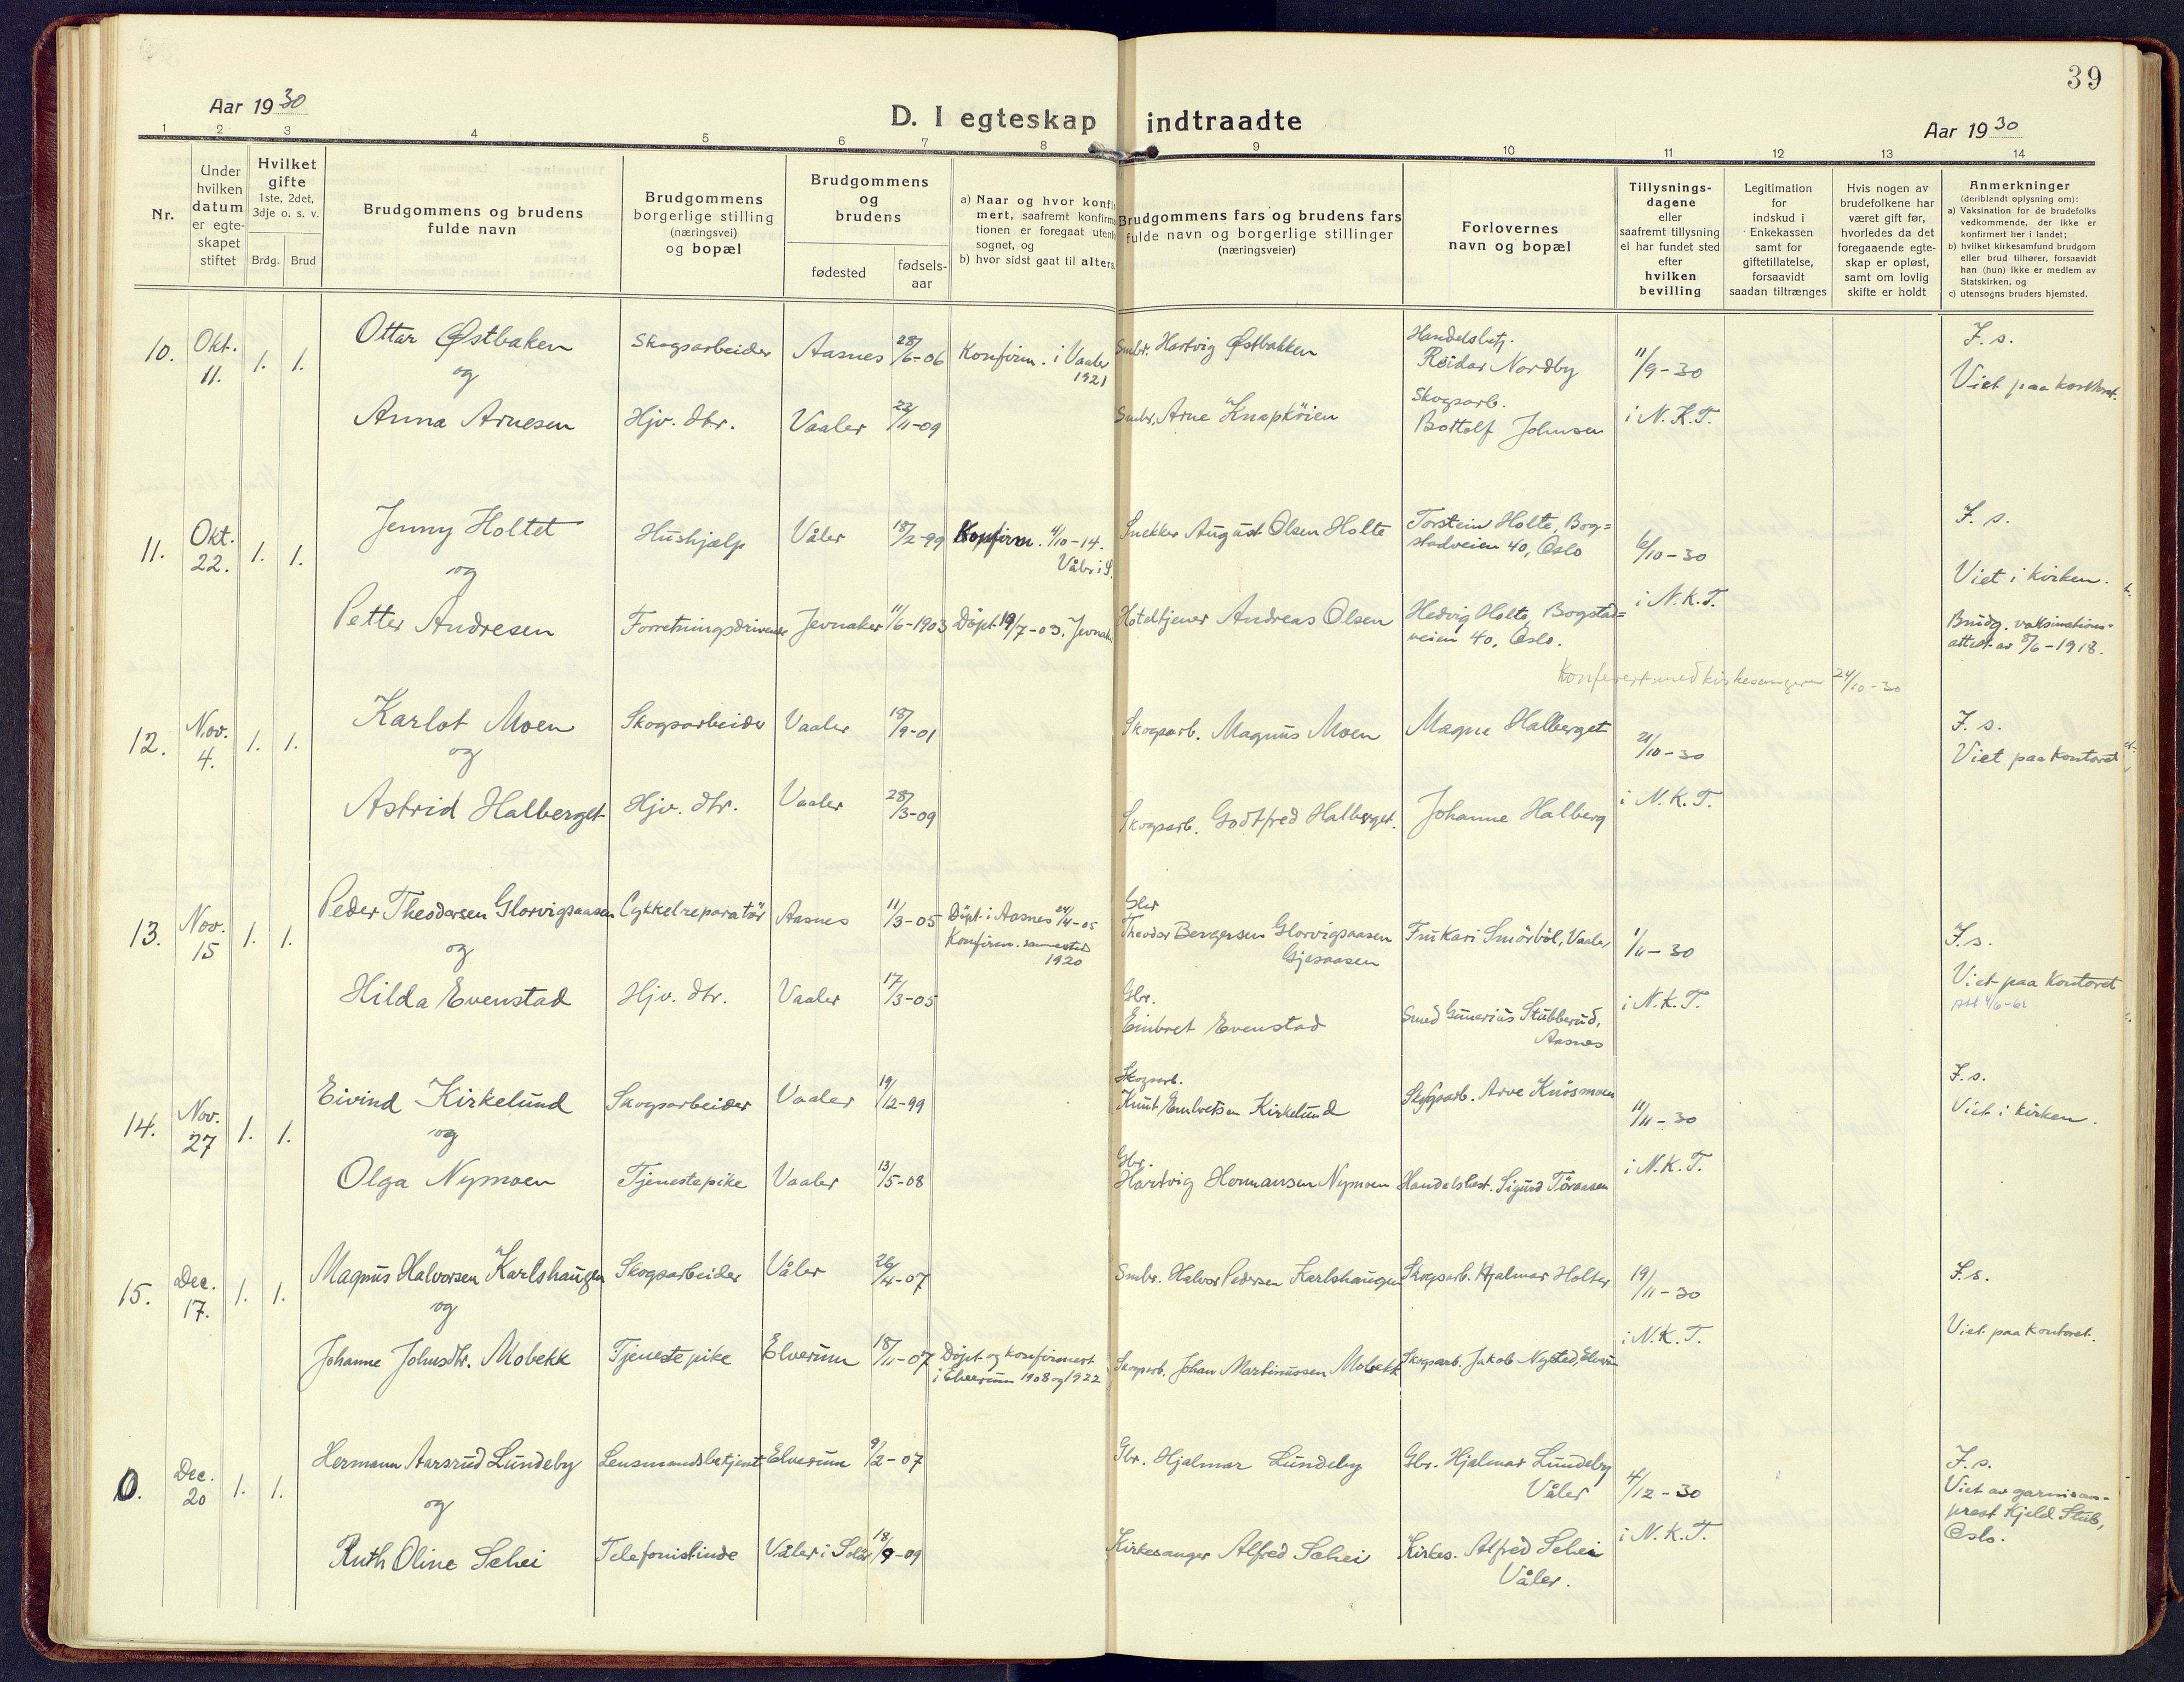 39
Aar 1930
D. I egteskap indtraadte
Aar 1930
1 2 3 4 5 6 7 8 9 10 11 12 13 14
Nr.
Under
hvilken
datum
er egte-
skapet
stiftet
Hvilket
gifte
1ste, 2det,
3dje o. s. v.
Brdg. Brud
Brudgommens og brudens
fulde navn
Brudgommens
borgerlige stilling
(næringsvei)
og bopæl
Brudgommens
og
brudens
fødested
fødsels-
aar
a) Naar og hvor konfir
mert, saafremt konfirma
tionen er foregaat utenfo
sognet, og
b) hvor sidst gaat til alters
Brudgommens fars og brudens fars
fulde navn og borgerlige stillinger
(næringsveier)
Forlovernes
navn og bopæl
Tillysnings-
dagene
eller
saafremt tillysning
ei har fundet sted
efter
hvilken
bevilling
Legitimation
for
indskud i
Enkekassen
samt for
giftetillatelse,
forsaavidt
saadan tiltrænges
Hvis nogen av
brudefolkene har
været gift før,
hvorledes da det
foregaaende egte-
skap er opløst,
samt om lovlig
skifte er holdt
Anmerkninger
(deriblandt oplysning om):
a) Vaksination for de brudefolks
vedkommende, der ikke er
konfirmert her i landet;
b) hvilket kirkesamfund brudgom
eller brud tilhører, forsaavidt
han (hun) ikke er medlem av
Statskirken, og
c) utensogns bruders hjemsted.
10. Okt. 11. 1. 1.
Ottar Østbaken
og
Anna Arnesen
Skogsarbeider
Hjv. dtr.
Aasnes 28/6-06
Vaaler 22/11-09
Konfirm. i Vaaler
1921
Smbr. Hartvig Østbakken
Smbr. Arne Knapköien
Handelsbetj.
Reidar Nordby
Skogsarb.
Bottolf Johnsen
11/9-30
i N.K.T.
F. s.
Viet paa kontoret.
11. Okt. 22. 1. 1.
Jenny Holtet
og
Petter Andresen
Hushjælp
Forretningsdrivende
Våler 18/2-99
Jevnaker 11/6-1903
Konfirm. 4/10-14.
Våler i S.
Döpt 19/7-03. Jevnak.
Snekker August Olsen Holte
Hoteltjener Andreas Olsen
Torstein Holte, Bog=
stadveien 40, Oslo
Hedvig Holte, Bogstad=
veien 40, Oslo.
6/10-30
i N.K.T.
F. s.
Viet i kirken.
Brudg. vaksinations-
attest av 8/6-1918.
Konferert med kirkesangeren 24/10-30
12. Nov. 4. 1. 1.
Karlot Moen
og
Astrid Halberget
Skogsarbeider
Hjv. dtr.
Vaaler 18/9-01
Vaaler 28/3-09
Skogsarb. Magnus Moen
Skogsarb. Godtfred Halberget.
Magne Halberget
Johanne Halberg
21/10-30
i N.K.T.
F. s.
Viet paa kontoret
13. Nov. 15 1. 1.
Peder Theodorsen Glorvigsaasen
og
Hilda Evenstad
Cykkelreparatör
Hjv. dtr.
Aasnes 11/3-05
Vaaler 17/3-05
Döpt i Aasnes 24/4-05
Konfirm. sammested
1920
Gbr
Theodor Bergersen Glorvigsaasen
Gjesaasen
Gbr.
Embret Evenstad
Fru Kari Smörböl, Vaaler
Smed Gunerius Stubberud,
Aasnes
1/11-30
i N.K.T.
F.s.
Viet paa kontoret
Att 4/6-62
14. Nov. 27 1. 1.
Eivind Kirkelund
og
Olga Nymoen
Skogsarbeider
Tjenestepike
Vaaler 19/12-99
Vaaler 13/5-08
Skogsarb.
Knut Embretsen Kirkelund
Gbr.
Hartvig Hermansen Nymoen
Skogsarb. Arve Knösmoen
Handelsbest. Sigurd Töraasen
11/11-30
i N.K.T.
F.s.
Viet i kirken.
15. Dec. 17. 1. 1.
Magnus Halvorsen Karlshaugen
og
Johanne Johnsdtr. Mobekk
Skogsarbeider
Tjenestepike
Våler 26/4-07
Elverum 18/11-07
Döpt og konfirmert
i Elverum 1908 og 1922
Smbr. Halvor Pedersen Karlshaugen
Skogsarb. Johan Martinussen Mobekk
Skogsarb. Hjalmar Holter
Skogsarb. Jakob Nysted, Elverum
19/11-30
i N.K.T.
F.s.
Viet paa kontoret.
0. Dec. 20 1. 1.
Hermann Aarsrud Lundeby
og
Ruth Oline Schei
Lensmandsbetjent
Telefonistinde
Elverum 9/2-07
Våler i Solör 18/9-09
Gbr. Hjalmar Lundeby
Kirkesanger Alfred Schei
Gbr. Hjalmar Lundeby
Våler
Kirkes. Alfred Schei
Våler.
4/12-30
i N.K.T.
F.s.
Viet av garnisons-
prest Kjeld Stub,
Oslo.